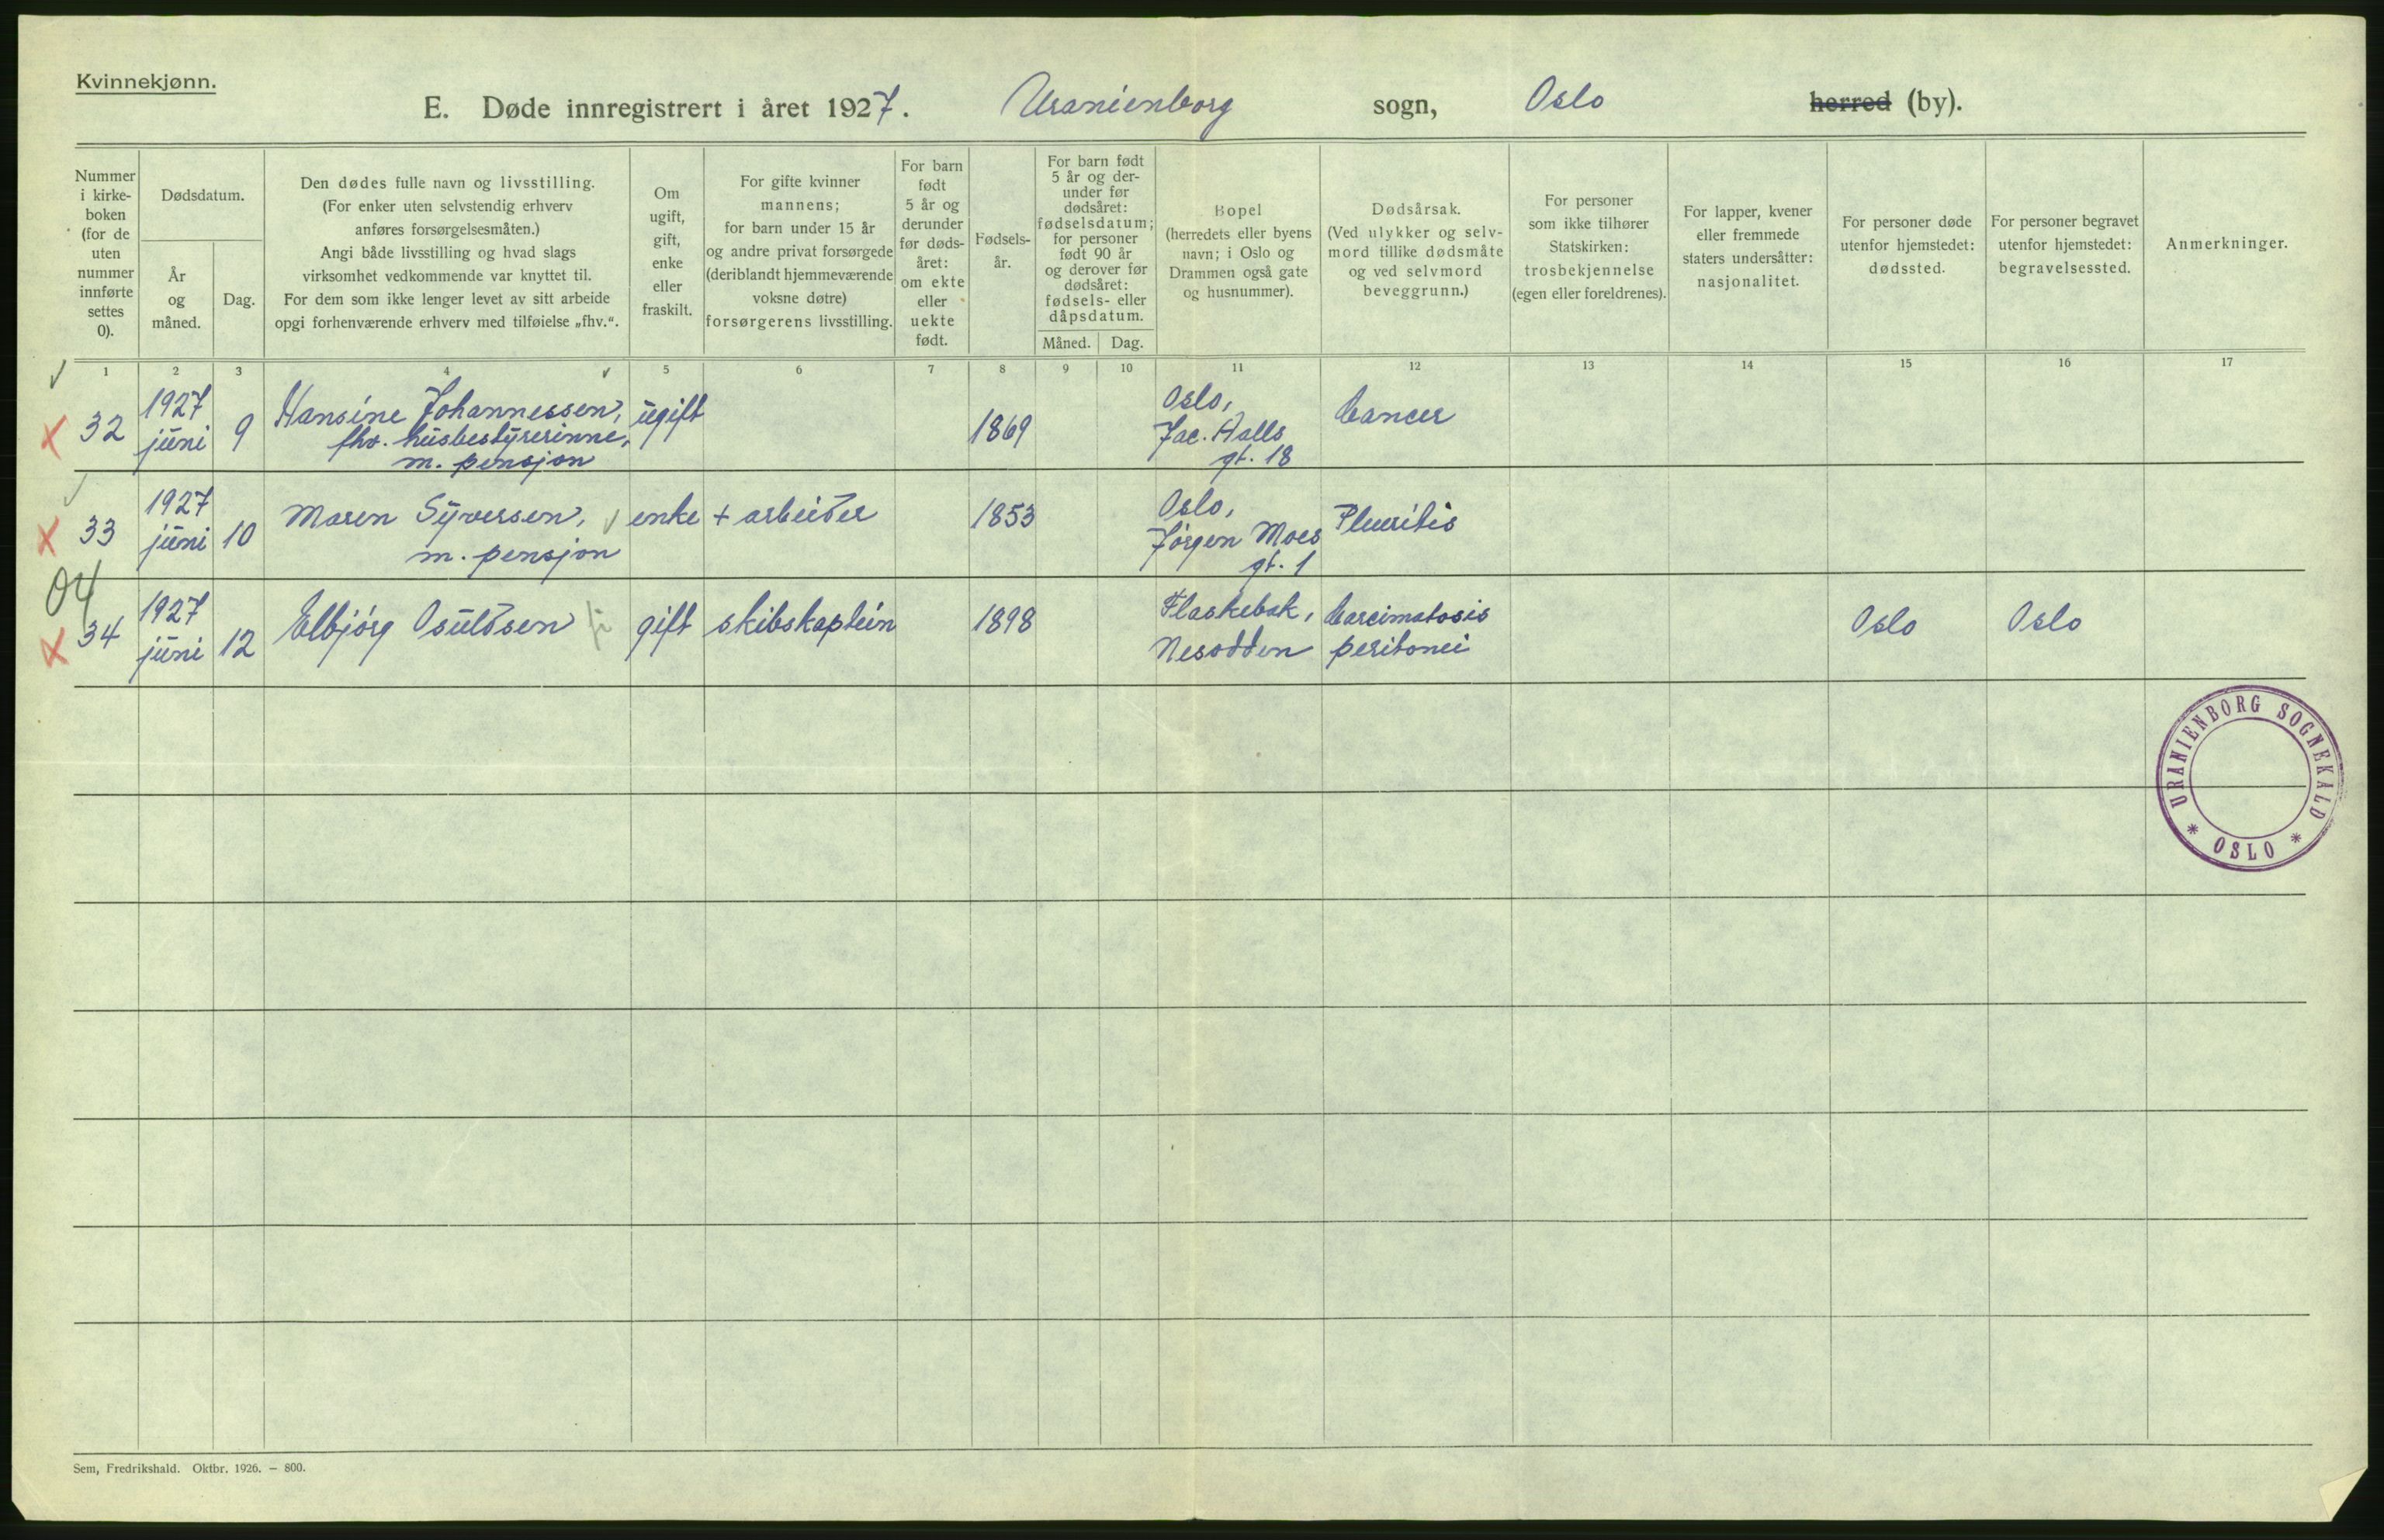 Kvinnekjønn.
E. Døde innregistrert i året 1927. Uranienborg sogn, Oslo herred (by).
Nummer
i kirke-
boken
(for de
uten
nummer
innførte
settes
0).
Dødsdatum.
År
og
måned.
Dag.
Den dødes fulle navn og livsstilling.
(For enker uten selvstendig erhverv
anføres forsørgelsesmåten.)
Angi både livsstilling og hvad slags
virksomhet vedkommende var knyttet til.
For dem som ikke lenger levet av sitt arbeide
opgi forhenværende erhverv med tilføielse „fhv.“.
Om
ugift,
gift,
enke
eller
fraskilt.
For gifte kvinner
mannens;
for barn under 15 år
og andre privat forsørgede
(deriblandt hjemmeværende
voksne døtre)
forsørgerens livsstilling.
For barn
født
5 år og
derunder
før døds-
året:
om ekte
eller
uekte
født.
Fødsels-
år.
For barn født
5 år og der-
under før
dødsåret:
fødselsdatum;
for personer
født 90 år
og derover før
dødsåret:
fødsels- eller
dåpsdatum.
Måned. Dag.
Bopel
(herredets eller byens
navn; i Oslo og
Drammen også gate
og husnummer).
Dødsårsak.
(Ved ulykker og selv-
mord tillike dødsmåte
og ved selvmord
beveggrunn.)
For personer
som ikke tilhører
Statskirken:
trosbekjennelse
(egen eller foreldrenes).
For lapper, kvener
eller fremmede
staters undersåtter:
nasjonalitet.
For personer døde
utenfor hjemstedet:
dødssted.
For personer begravet
utenfor hjemstedet:
begravelsessted.
Anmerkninger.
1 2 3 4 5 6 7 8 9 10 11 12 13 14 15 16 17
32
1927
juni
9
Hansine Johannessen,
fhv. husbestyrerinne,
m. pensjon
ugift
1869
Oslo,
Jac. Aalls
gt. 18
Cancer
33
1927
juni
10
Maren Syversen,
m. pensjon
enke
+ arbeider
1853
Oslo,
Jørgen Moes
gt. 1
Pleuritis
04
34
1927
juni
12
Elbjørg Osuldsen
gift
skibskaptein
1898
Flaskebek,
Nesodden
Carcimatosis
peritonei
Oslo
Oslo
URANIENBORG SOGNEKALD
* OSLO *
Sem, Fredrikshald. Oktbr. 1926. — 800.